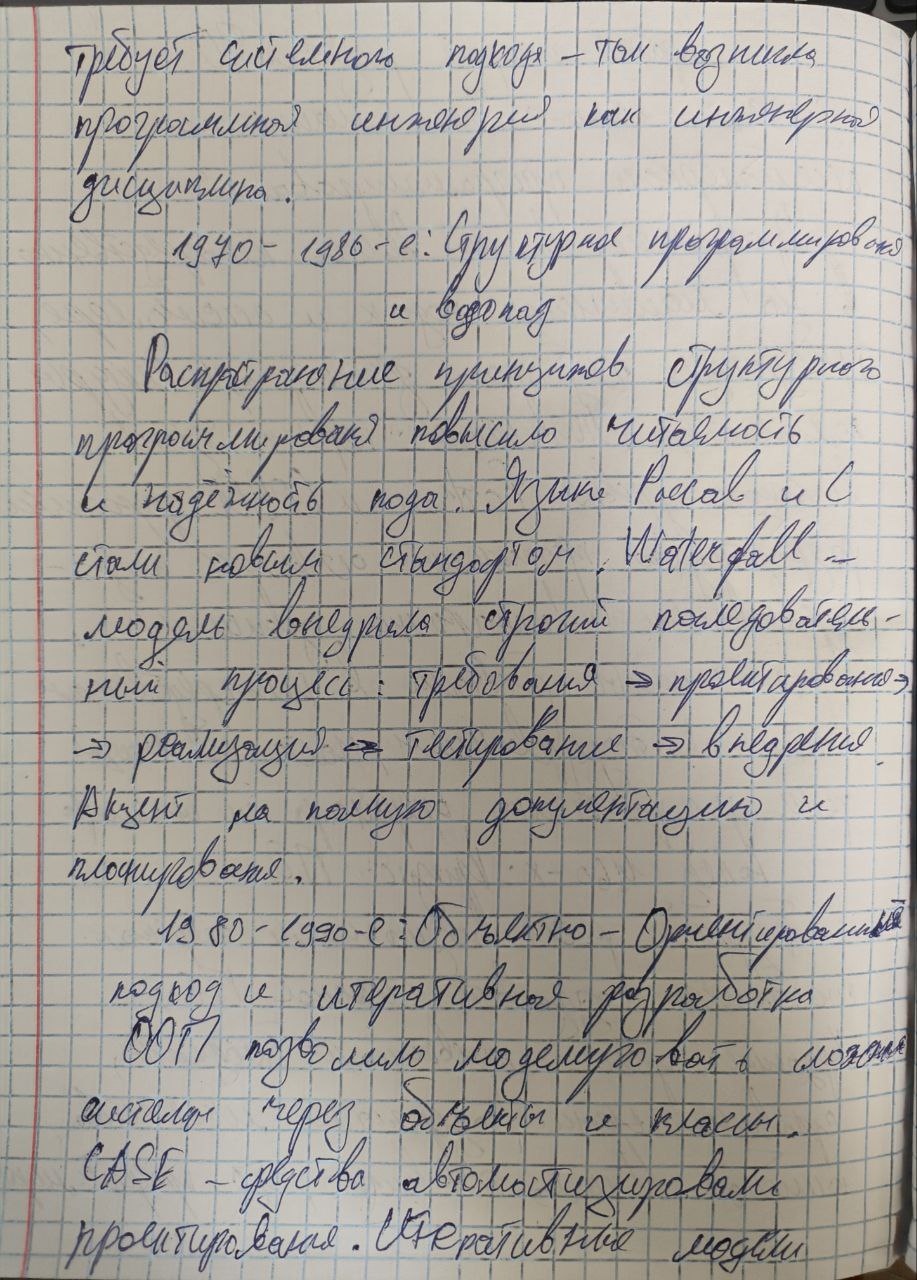 требует системного подхода – так возникла
программная инженерия как инженерная
дисциплина.
1970 – 1980-е: Структурное программирование
и водопад
Распространение принципов структурного
программирования повысило читаемость
и надёжность кода. Языки Pascal и C
стали новым стандартом. Waterfall –
модель внедрила строгий последователь-
ный процесс: требования → проектирование →
→ реализация → тестирование → внедрение.
Акцент на полную документацию и
планирование.
1980 – 1990-е: Объектно – Ориентированный
подход и итеративная разработка
ООП позволило моделировать сложные
системы через объекты и классы.
CASE – средства автоматизировали
проектирование. Итеративные модели